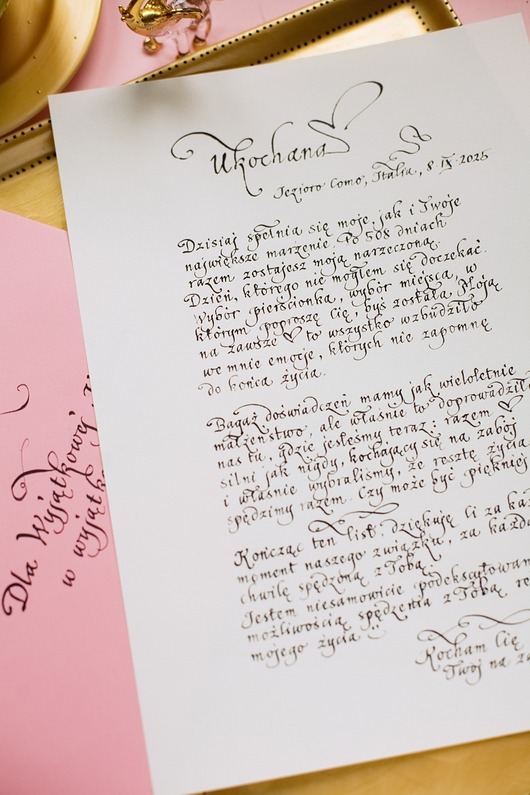 Ukochana
Jezioro Como, Italia, 8.IX.2025
Dzisiaj spełnia się moje, jak i Twoje
największe marzenie. Po 508 dniach
razem zostajesz moją narzeczoną.
Dzień, którego nie mogłem się doczekać.
Wybór pierścionka, wybór miejsca, w
którym poproszę Cię, byś została Moją
na zawsze ♡ to wszystko wzbudziło
we mnie emocje, których nie zapomnę
do końca życia.
Bagaż doświadczeń mamy jak wieloletnie
małżeństwo, ale właśnie to doprowadziło
nas tu, gdzie jesteśmy teraz: razem ♡
silni jak nigdy, kochający się na zabój
i właśnie wybraliśmy, że resztę życia
spędzimy razem. Czy może być piękniej
Kończąc ten list: dziękuję Ci za
moment naszego związku, za
chwilę spędzoną z Tobą.
Jestem niesamowicie
możliwością spędzenia z Tobą
mojego życia
Kocham Cię
Twój na
Dla Wyjątkowej
w